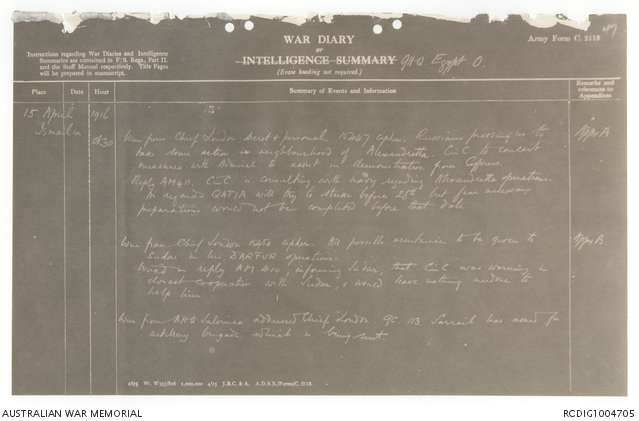 WAR DIARY
or
INTELLIGENCE SUMMARY GHQ Egypt O.
(Erase heading not required.)
Army Form C. 2118
Instructions regarding War Diaries and Intelligence
Summaries are contained in F.S. Regs., Part II.
and the Staff Manual respectively. Title Pages
will be prepared in manuscript.
Place Date Hour Summary of Events and Information Remarks and references to Appendices
15 April 1916
Ismailia
Wire from Chief London secret & personal cipher. Russians pressing us to Appx A
take some action in neighbourhood of Alexandretta. C-in-C to concert
measures with Admiral to assist in demonstration from Cyprus.
Reply C-in-C is consulting with navy regarding Alexandretta operations.
As regards QATIA will try to before 25th but fear necessary
preparations would not be completed before that date.
Wire from Chief London cipher. All possible assistance to be given to Appx B
Sudan in his DARFUR operations.
in reply informing that C-in-C was working in
closest cooperation with Sudan, & would leave nothing undone to
help him
Wire from GHQ Salonica addressed Chief London Sarrail has asked for
artillery brigade which is being sent.
AUSTRALIAN WAR MEMORIAL
RCDIG1004705